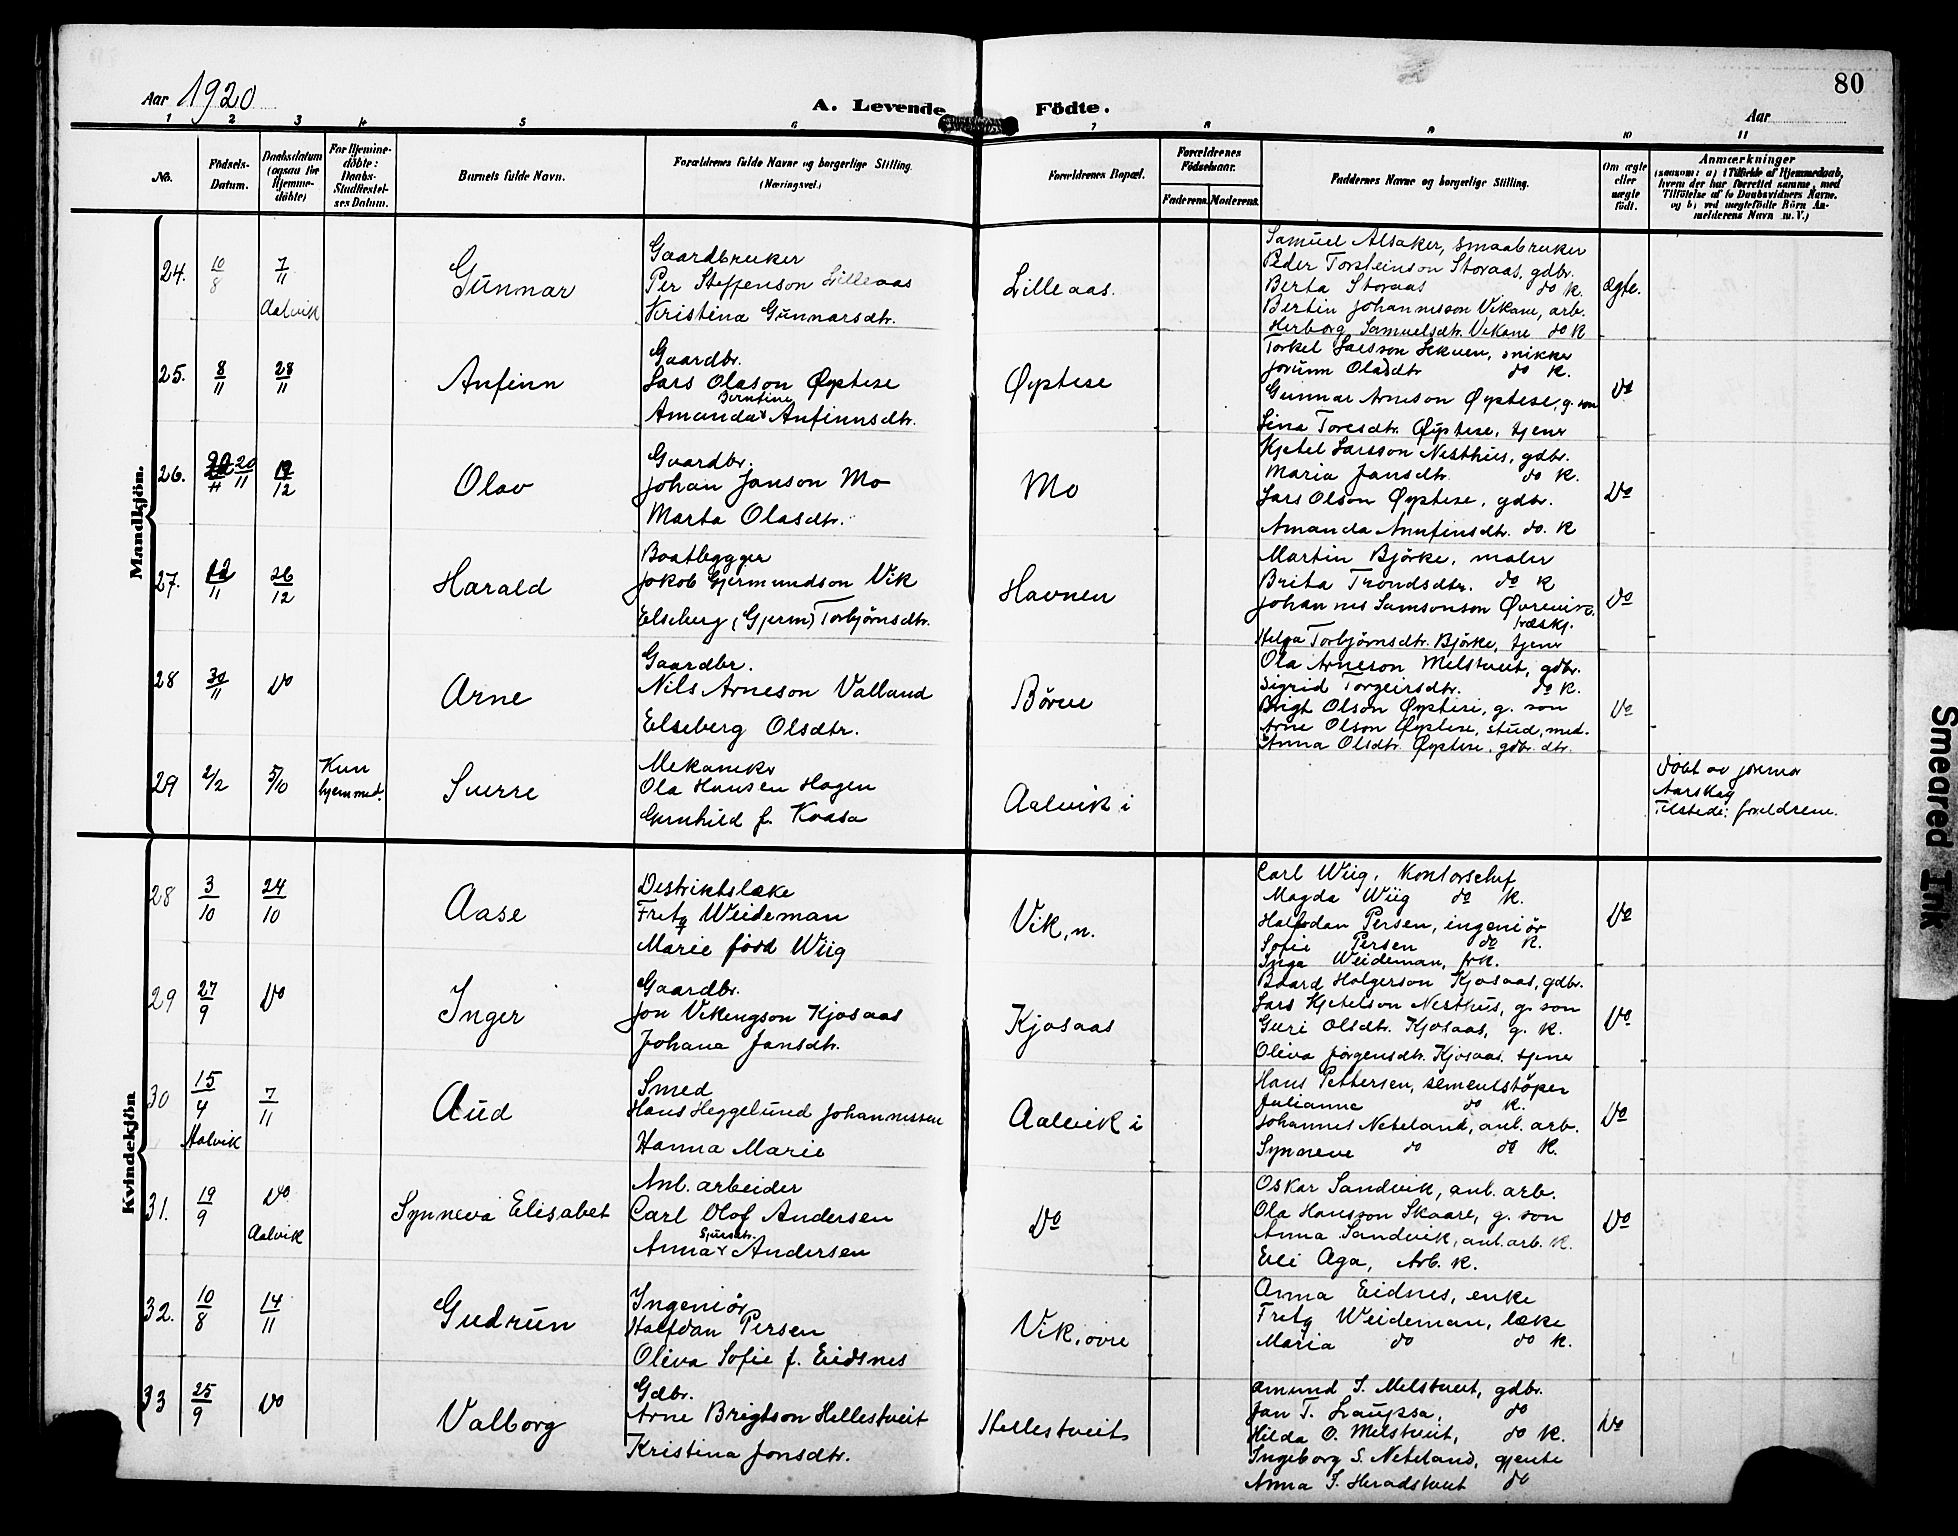 80
Aar 1920
A. Levende Födte.
Aar
1 2 3 4 5 6 7 8 9 10 11
No.
Födsels-
Datum.
Daabsdatum
(ogsaa for
Hjemme-
döbte)
For Hjemme-
döbte:
Daabs-
Stadfæstel-
ses Datum.
Barnets fulde Navn.
Forældrenes fulde Navne og borgerlige Stilling.
(Næringsvei.)
Forældrenes Bopæl.
Forældrenes
Födselsaar.
Faderens. Moderens.
Faddernes Navne og borgerlige Stilling.
Om ægte
eller
uægte
födt.
Anmærkninger
(saasom: a) i Tilfælde af Hjemmedaab,
hvem der har forrettet samme, med
Tilföielse af to Daabsvidners Navne.
og b) ved uægtefödte Börn An-
melderens Navn m. V.)
Mandkjön.
24. 10/8 7/11
Aalvik
Gunnar
Gaardbruker
Per Steffenson Lilleaas
Kristina Gunnarsdtr.
Lilleaas.
Samuel Alsaker, smaabruker
Peder Torsteinson Storaas, gdbr.
Berta Storaas do k.
Bertin Johannesson Vikane, arb.
Herborg Samuelsdtr. Vikane do k
ægte.
25. 8/11 28/11
Anfinn
Gaardbr.
Lars Olason Øystese
Berntine
Amanda x Anfinnsdtr.
Øystese
Torkel Larsson Skuen, snikker
Jorunn Olasdtr do k.
Gunnar Arneson Øystese, g. son
Lina Toresdtr. Øystese, tjener
do
26. 20/11 19/12
Olav
Gaardbr.
Johan Janson Mo
Marta Olasdtr.
Mo
Kjetel Larsson Nesthus, gdbr.
Maria Jansdtr. do k.
Lars Olson Øystese, gdbr.
Amanda Annfinsdtr. do. k
Do
27. 12/11 26/12
Harald
Baatbygger
Jokob Gjermundson Vik
Elseberg (Gjerm) Torbjørnsdtr.
Havnen
Martin Bjørke, maler
Brita Trondsdtr. do k
Johannes Samsonson Øvrevik
træskj.
Helga Torbjørnsdtr. Bjørke, tjener
do
28 30/11 Do
Arne
Gaardbr.
Nils Arneson Valland
Elseberg Olsdtr.
Børve
Ola Arneson Melstveit, gdbr.
Sigrid Torgeirsdtr. do k.
Brigt Olson Øystese, g. son
Arne Olson Øystese, stud, med.
Anna Olsdtr. Øystese, gdbr. dtr.
Do
29 2/2 5/10
Kun
hjemmed.
Sverre
Mekaniker
Ola Hansen Hagen
Gunhild f. Kaasa
Aalvik i
Döbt av jormor
Aarskog
Tilstede: foreldrene.
Kvindekjön
28 3/10 24/10
Aase
Distriktslæke
Fritz Weideman
Marie född Wiig
Vik, n.
Carl Wiig, Kontorschef
Magda Wiig do k.
Halfdan Persen, ingeniør
Sofie Persen do k.
Inga Weideman, frk.
Do
29 27/9 Do
Inger
Gaardbr.
Jon Vikingson Kjosaas
Johane Jansdtr.
Kjosaas
Baard Holgerson Kjosaas, gdbr.
Lars Kjetelson Nesthus, g. son
Guri Olsdtr. Kjosaas, g. k.
Oliva Jørgensdtr. Kjosaas, tjener
Do
30 15/4 7/11
Aalvik
Aud
Smed
Hans Heggelund Johannessen
Hanna Marie
Aalvik i
Hans Pettersen, sementstöper
Julianne do k.
Johannes Neteland, anl. arb.
Synneve do do k.
Do
31. 19/9 Do
Aalvik
Synneva Elisabet
Anl. arbeider
Carl Olof Andersen
Sjursdtr.
Anna x Andersen
Do
Oskar Sandvik, anl. arb.
Ola Hansson Skaare, g. son
Anna Sandvik, anl. arb. k.
Eli Aga, Arb. k.
Do
32. 10/8 14/11
Gudrun
Ingeniør
Halfdan Persen
Oliva Sofie f. Eidsnes
Vik, övre
Anna Eidnes, enke
Fritz Weideman, læke
Maria do do k.
33 25/9 Do
Valborg
Gdbr.
Arne Brigtson Hellestveit
Kristina Jonsdtr.
Hellestveit
Amund I. Melstveit, gdbr.
Jan T. Laupsa, do
Hilda O. Melstveit, do k.
Ingeborg S. Neteland, gjente
Anna I. Heradstveit do
Do
Smeared Ink